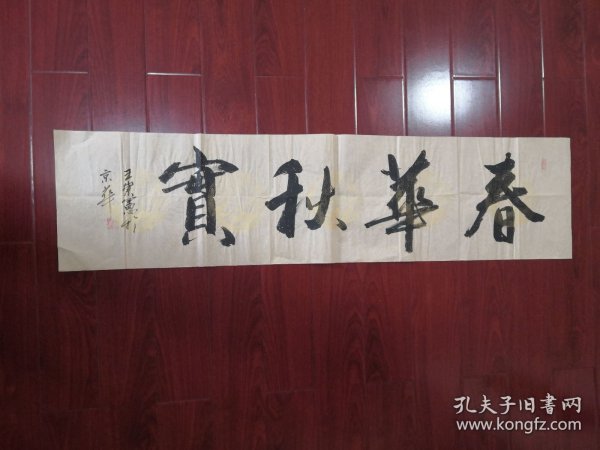 春華秋實
京華
孔夫子旧书网
www.kongfz.com